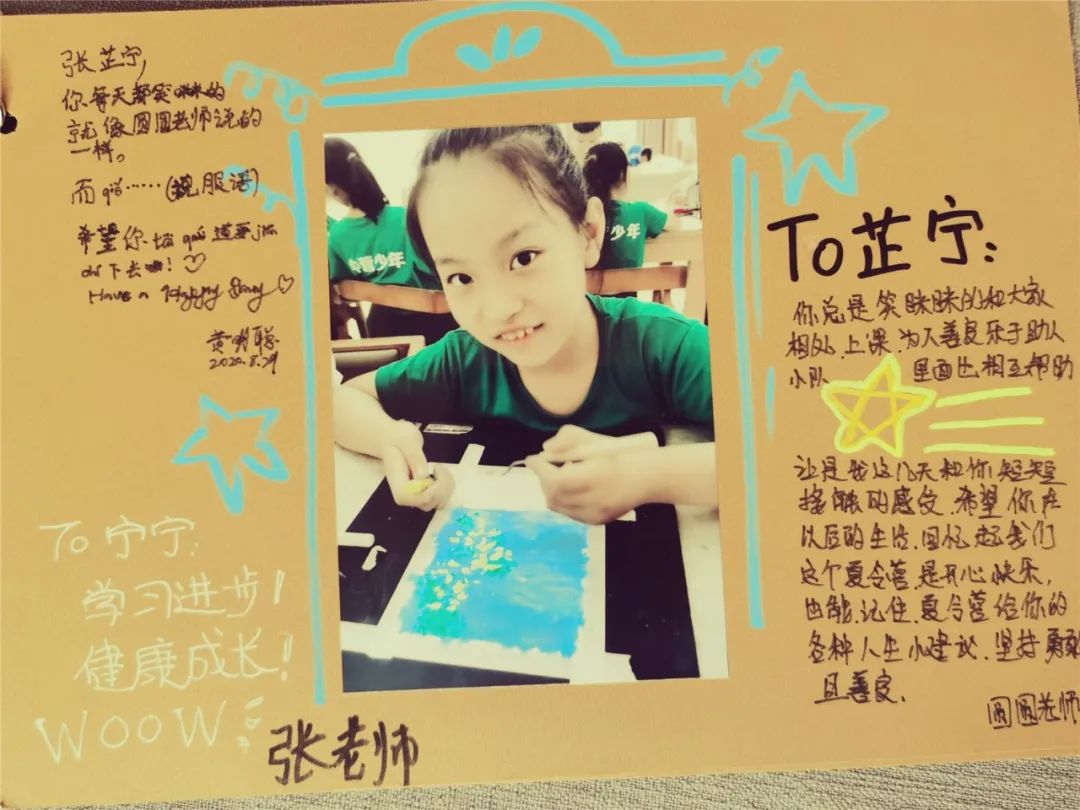 张芷宁,
你每天都笑咪咪的
就像圆圆老师说的
一样。
而qiě……(说服语)
希望你
下去！♡
Have a Happy Day ♡
黄明聪
2020.8.29
To 宁宁:
学习进步！
健康成长！
WOOW
张老师
青少年
少年
To 芷宁:
你总是笑眯眯的和大家
相处.上课.为人善良乐于助人
小队 里面也相互帮助
让是我这几天和你短短
接触的感受.希望你在
以后的生活.回忆起我们
这个夏令营.是开心快乐,
也能.记住.夏令营给你的
各种人生小建议.坚持勇敢
且善良.
圆圆老师